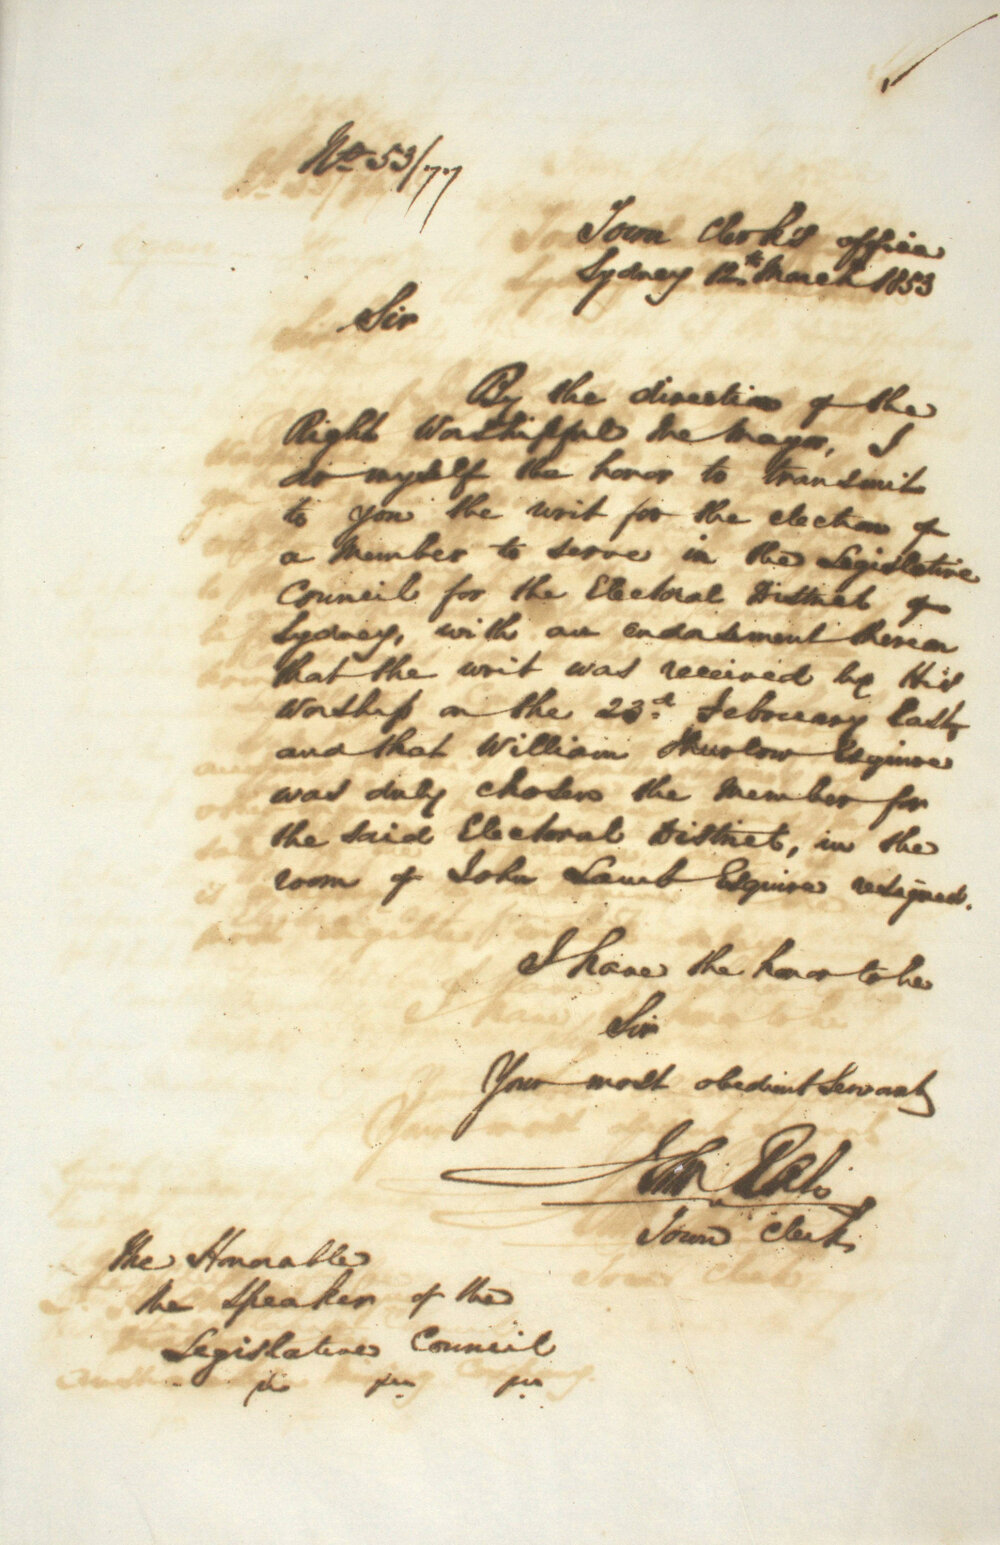 No 53/77
Town Clerk's Office
Sydney March 1853
Sir
By the direction of the
Right Worshipful the Mayor, I
do myself the honor to transmit
to you the writ for the election of
a Member to serve in the Legislative
Council for the Electoral District of
Sydney, with an endorsement thereon
that the writ was received by His
Worship on the 23rd February last,
and that William Thurlow Esquire
was duly chosen the Member for
the said Electoral District, in the
room of John Lamb Esquire resigned.
I have the honor to be
Sir
Your most obedient Servant
John
Town Clerk
The Honorable
the Speaker of the
Legislative Council